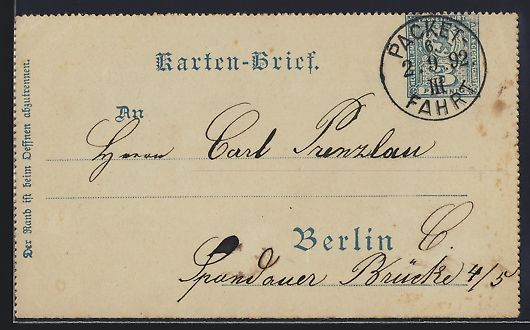 Karten-Brief.
PACKET-
6-
2.9.92
III.
FAHRT
An
Herrn Carl Prenzlau
Berlin C.
Spandauer Brücke 4/5
Der Rand ist beim Oeffnen abzutrennen.